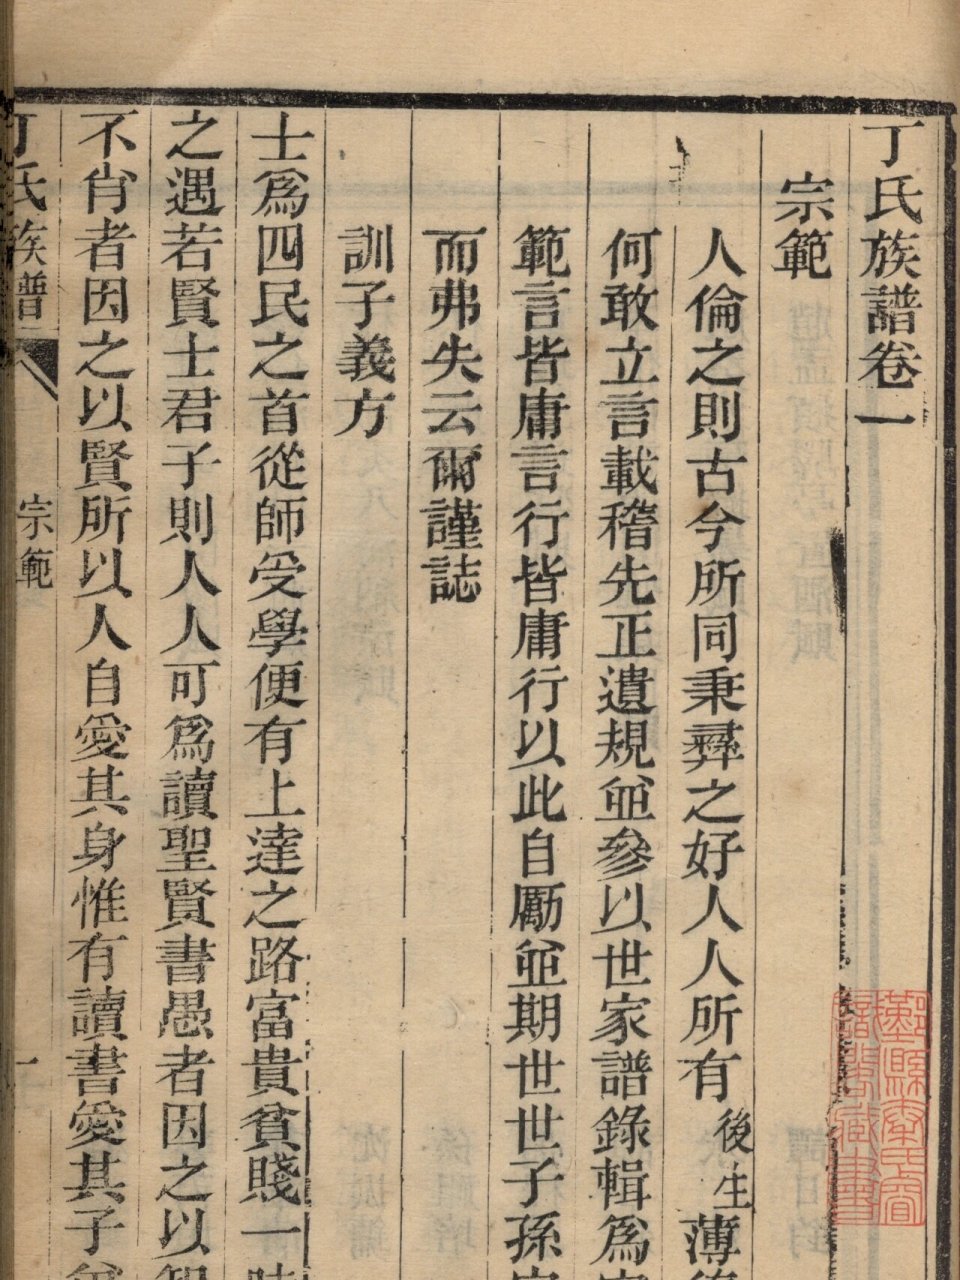 丁氏族譜卷一
宗範
人倫之則古今所同秉彞之好人人所有後生薄德
何敢立言載稽先正遺規並參以世家譜錄輯爲宗
範言皆庸言行皆庸行以此自勵並期世世子孫守
而弗失云爾謹誌
訓子義方
士爲四民之首從師受學便有上達之路富貴貧賤一時
之遇若賢士君子則人人可爲讀聖賢書愚者因之以智
不肖者因之以賢所以人自愛其身惟有讀書愛其子
丁氏族譜
宗範
一
鄞縣秦氏睿
識閣藏書